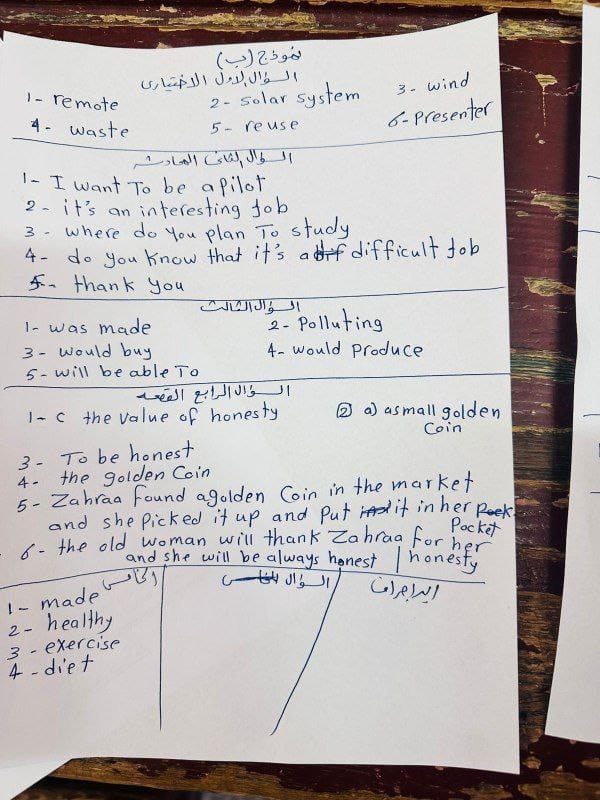 نموذج (ب)
السؤال الاول الاختيارى
1- remote 2- Solar system 3- wind
4- waste 5- reuse 6- Presenter
السؤال الثانى المحادثه
1- I want To be a pilot
2- it's an interesting Job
3- where do you plan To study
4- do you know that it's a difficult Job
5- thank you
السؤال الثالث
1- was made 2- Polluting
3- would buy 4- would produce
5- will be able To
السؤال الرابع القصه
1- c the value of honesty 2 a) a small golden
Coin
3- To be honest
4- the golden Coin
5- Zahraa found a golden Coin in the market
and she picked it up and Put it in her
Pocket
6- the old woman will thank Zahraa for her
and she will be always honest honesty
الخامس السؤال البراجراف
1- made
2- healthy
3- exercise
4- diet